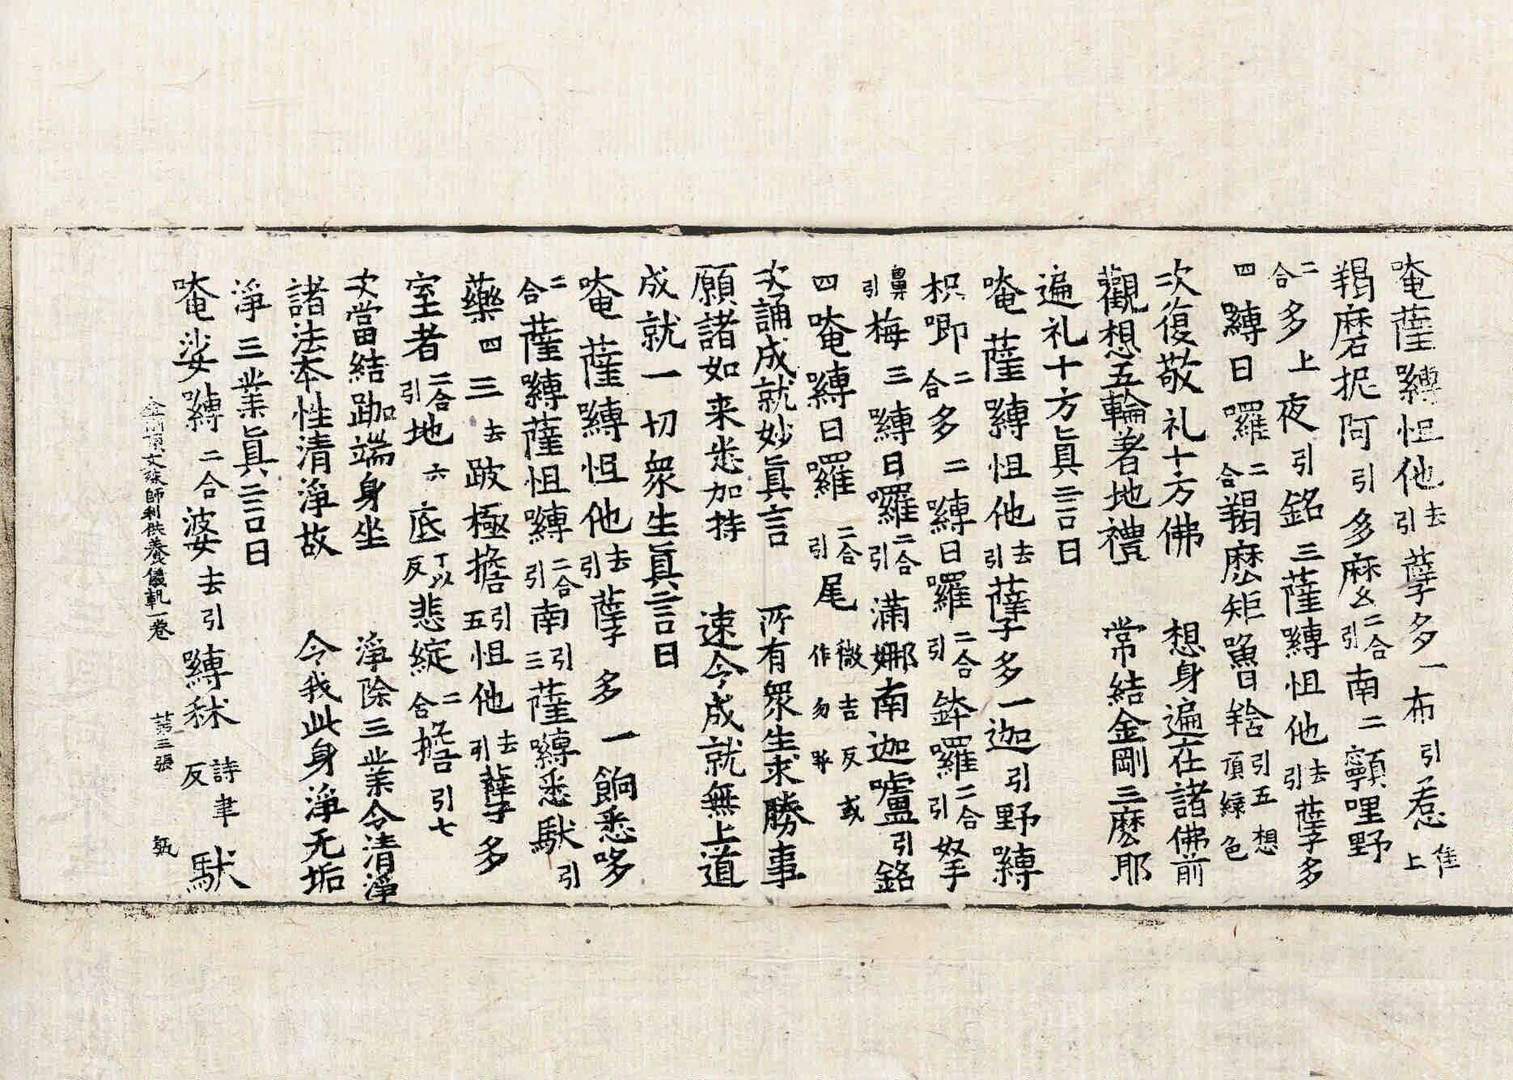 唵薩嚩怛他去引孽多一布引惹隹上
羯磨抳阿引多麼二合引南二顐哩野
二合多上夜引銘三薩嚩怛他去引孽多
四嚩日囉二合羯麼矩嚕引五想頂緑色
次復敬礼十方佛　想身遍在諸佛前
觀想五輪著地禮　常結金剛三麽耶
遍礼十方真言曰
唵薩嚩怛他去引孽多一迦引野嚩
枳唧二合多二嚩日囉二合引鉢囉二合引拏
鼻引梅三嚩日囉二合引滿娜南迦嚧引銘
四唵嚩日囉二合引尾微吉反或作勿
次誦成就妙真言　所有眾生求勝事
願諸如来悉加持　速令成就無上道
成就一切眾生真言曰
唵薩嚩怛他去引孽多一餉悉哆
二合薩嚩薩怛嚩二合引南引三薩嚩悉馱引
藥四三去跛極擔引五怛他去引孽多
室者二合引地六底丁以反悲綻二合引七
次當結跏端身坐　淨除三業令清淨
諸法本性清淨故　令我此身淨无垢
淨三業真言曰
唵娑嚩二合婆去引嚩秫詩聿反馱
金剛頂文殊師利供養儀軌一卷　第三張　甄